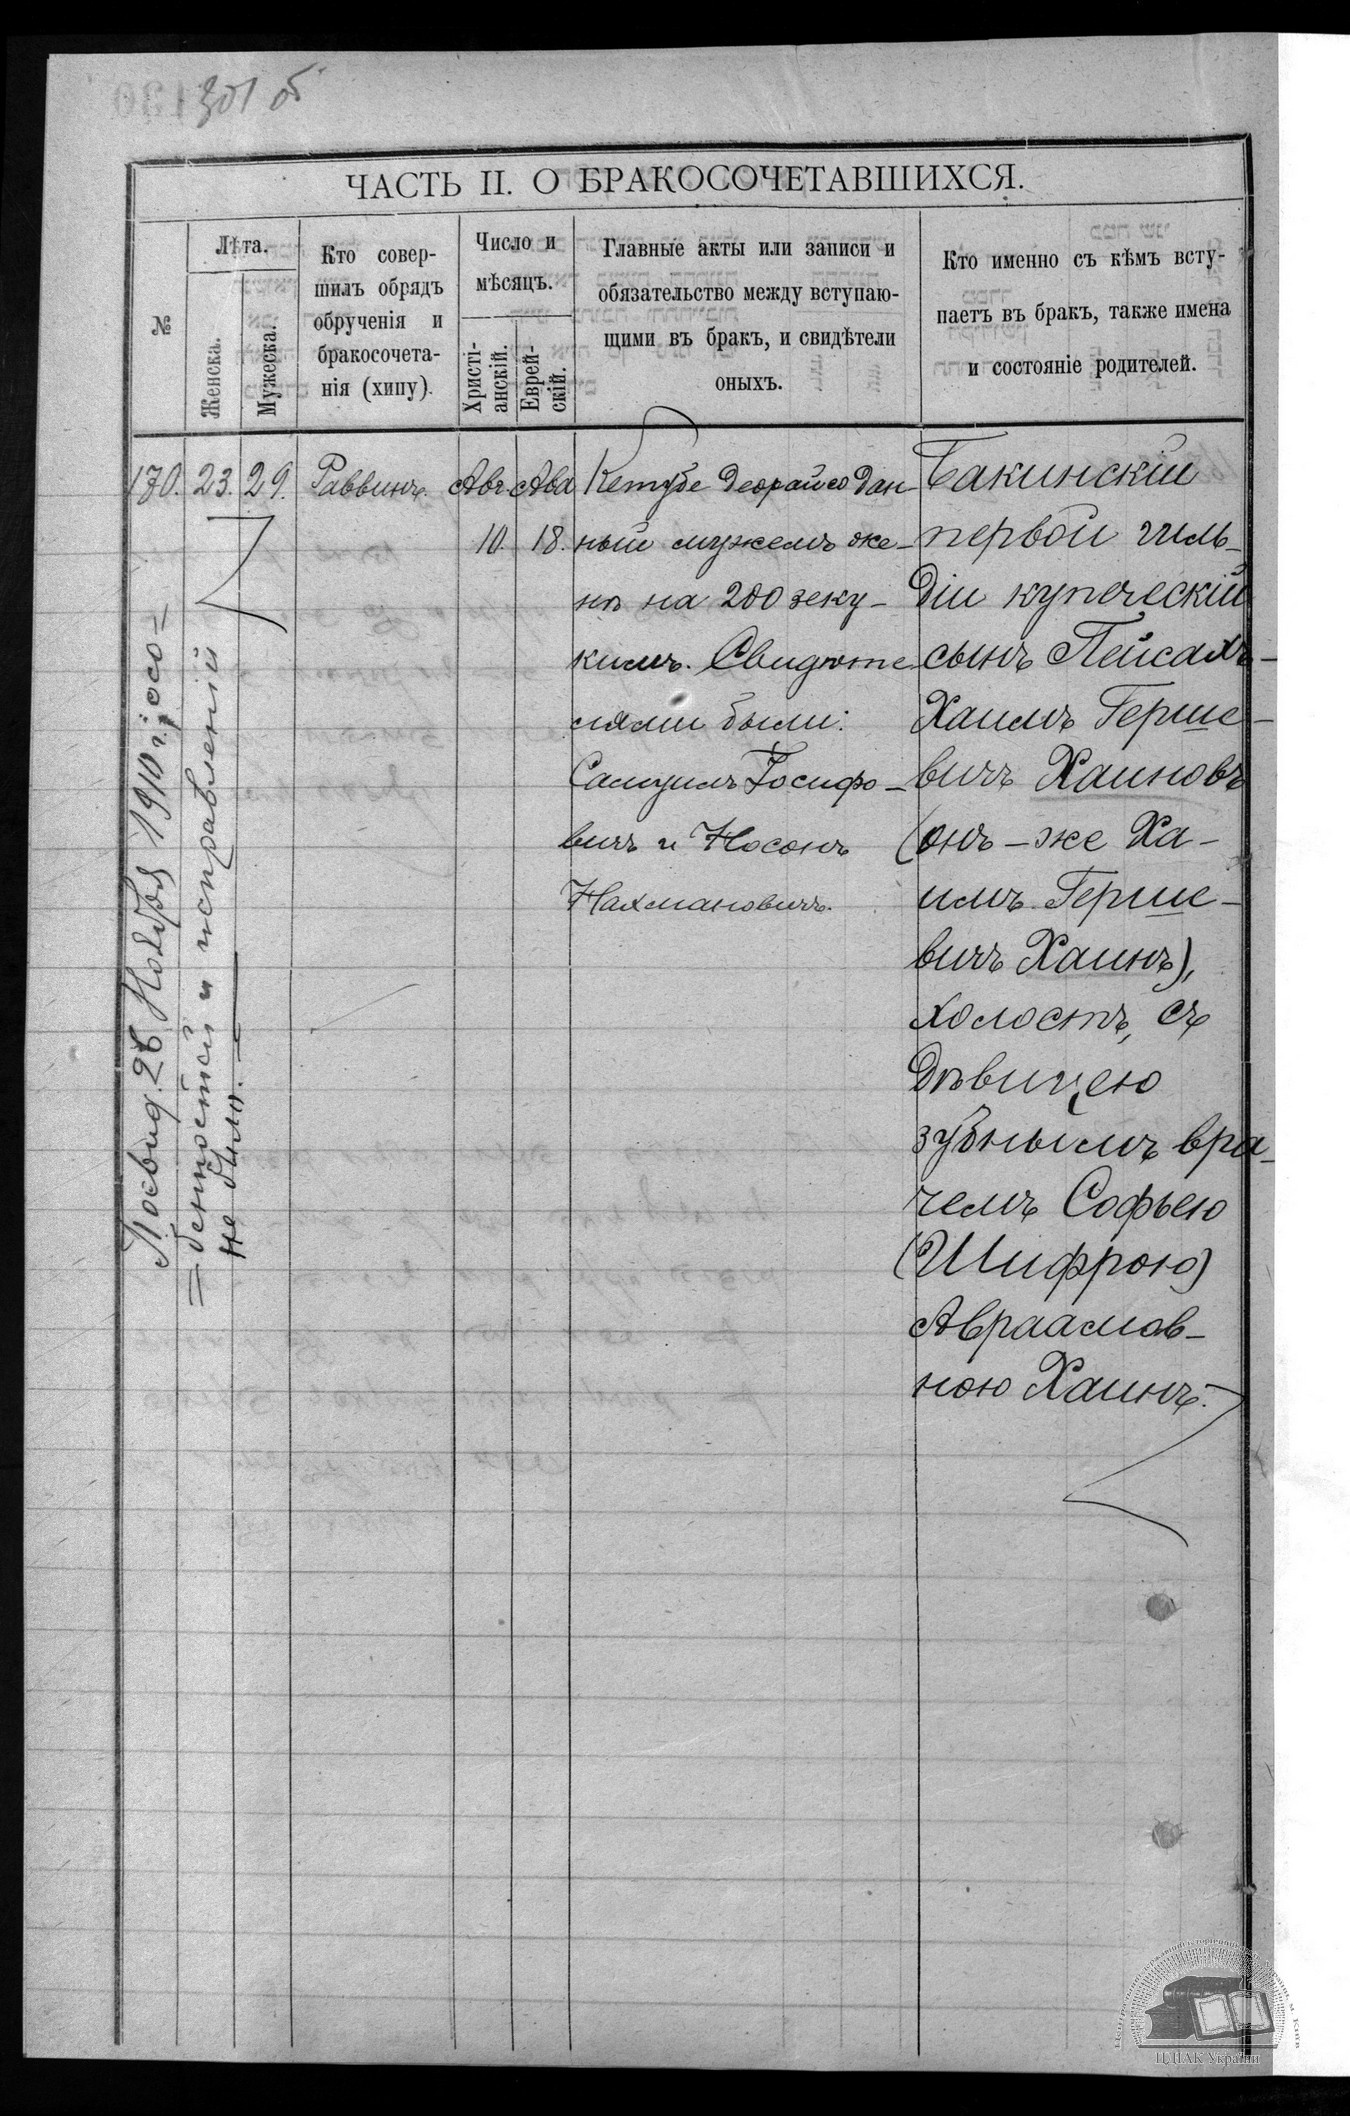 301 об
ЧАСТЬ II. О БРАКОСОЧЕТАВШИХСЯ.
№
Лѣта.
Женска.
Мужеска.
Кто совер-
шилъ обрядъ
обрученія и
бракосочета-
нія (хипу).
Число и
мѣсяцъ.
Христі-
анскій.
Еврей-
скій.
Главные акты или записи и
обязательство между вступаю-
щими въ бракъ, и свидѣтели
оныхъ.
Кто именно съ кѣмъ всту-
паетъ въ бракъ, также имена
и состояніе родителей.
170.
23.
29.
Раввинъ.
Авг.
10.
Ава
18.
Кетубе деорайсо дан-
ный мужемъ же-
нѣ на 200 зеку-
кимъ. Свидѣте
лями были:
Самуилъ Іосифо-
вичъ и Носонъ
Нахмановичъ.
Бакинскій
первой гиль-
діи купеческій
сынъ Пейсахъ-
Хаимъ Герше-
вичъ Хаиновъ
(онъ-же Ха-
имъ Герше-
вичъ Хаинъ),
холостъ, съ
дѣвицею
зубнымъ вра-
чемъ Софьею
(Шифрою)
Авраамов-
ною Хаинъ.
Посвид. 26 Ноября 1910 г.; осо=
=бенностей и исправленій
не было.
ЦДІАК України